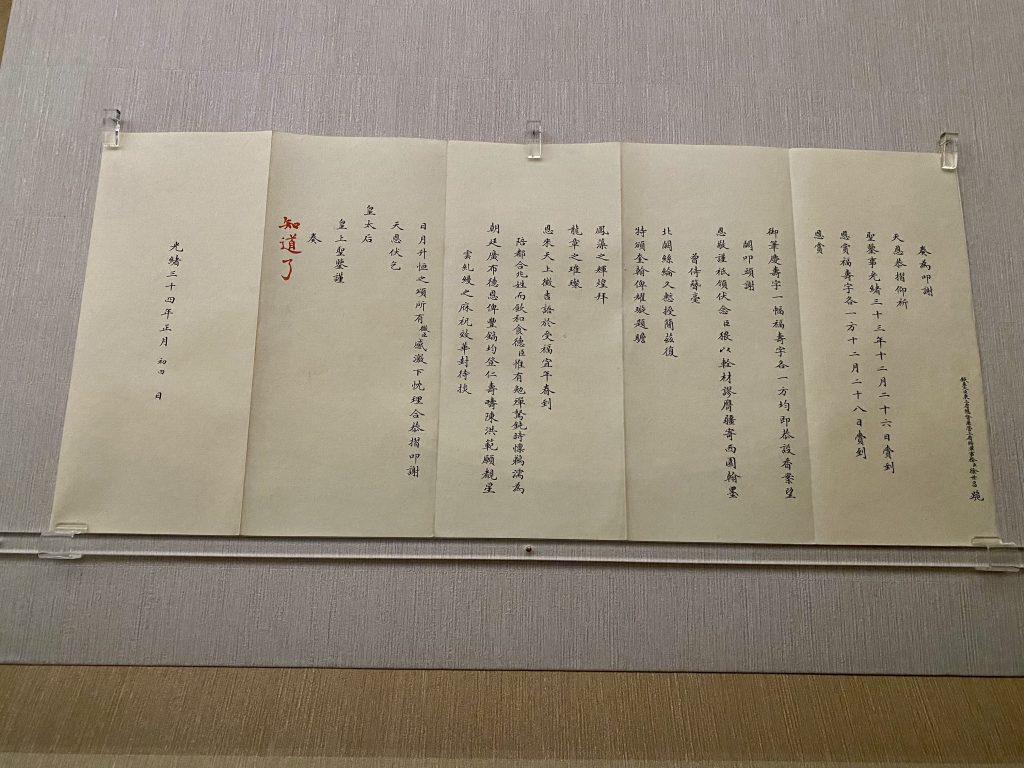 欽差大臣東三省總督兼管三省將軍事務臣徐世昌跪
奏為叩謝
天恩恭摺仰祈
聖鑒事光緒三十三年十二月二十六日賫到
恩賞福壽字各一方十二月二十八日賫到
恩賞
御筆慶壽字一幅福壽字各一方均即恭設香案望
闕叩頭謝
恩敬謹祗領伏念臣猥以輇材謬膺疆寄西園翰墨
曾侍毫
北闕絲綸久慙授簡茲復
特頒奎翰俾耀璇題瞻
鳳藻之輝煌拜
龍章之璀璨
恩來天上徵吉語於受福宜年春到
陪都合兆姓而飲和食德臣惟有勉殫駑鈍時懍鵜濡為
朝廷廣布德恩俾豐鎬均登仁壽疇陳洪範願覩星
雲糺縵之庥祝效華封待挨
日月升恒之頌所有微臣感激下忱理合恭摺叩謝
天恩伏乞
皇太后
皇上聖鑒謹
奏
知道了
光緒三十四年正月初四日